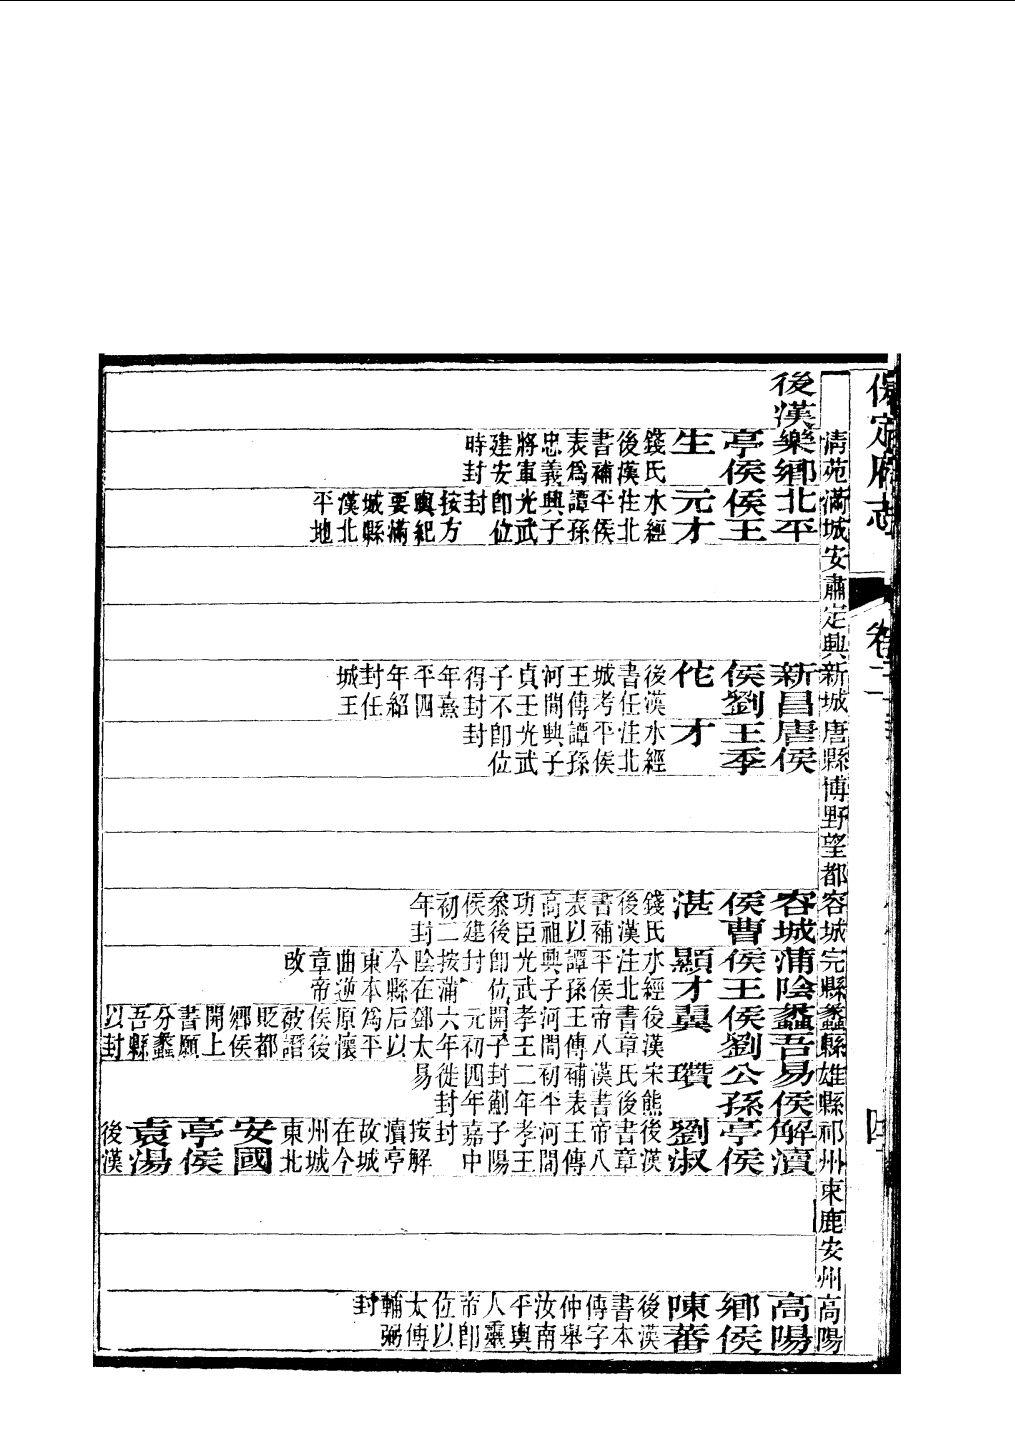 保定府志 卷二 四
清苑 滿城 安肅 定興 新城 唐縣 博野 望都 容城 完縣 蠡縣 雄縣 祁州 束鹿 安州 高陽
後漢
樂鄉亭侯生
錢氏後漢書補表爲忠義將軍建安時封
北平侯王元才
水經注北平侯譚孫興子光武卽位封按方輿紀要滿城縣漢北平地
新昌侯劉佗
後漢書任城考王傳河間貞王子不得封年熹平四年紹封任城王
唐侯王季才
水經注北平侯譚孫興子光武卽位封
容城侯曹湛
錢氏後漢書補表以高祖功臣參後侯建初二年封
蒲陰侯王顯才
水經注北平侯譚孫興子光武卽位封按蒲陰在今縣東本曲逆章帝改
蠡吾侯劉翼
後漢書章帝八王傳河間孝王開子元初六年鄧太后以爲平原懷侯後破譖貶都鄉侯開上書願分蠡吾縣以封
易侯公孫瓚
宋熊氏後漢書補表初平二年封薊四年徙封易
解瀆亭侯劉淑
後漢書章帝八王傳河間孝王子陽嘉中封按解瀆亭故城在今州城東北
安國亭侯袁湯
後漢
高陽鄉侯陳蕃
後漢書本傳字仲舉汝南平輿人靈帝卽位以太傅輔弼封